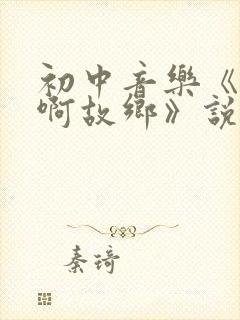 初中音樂《
啊故鄉》說
秦琦